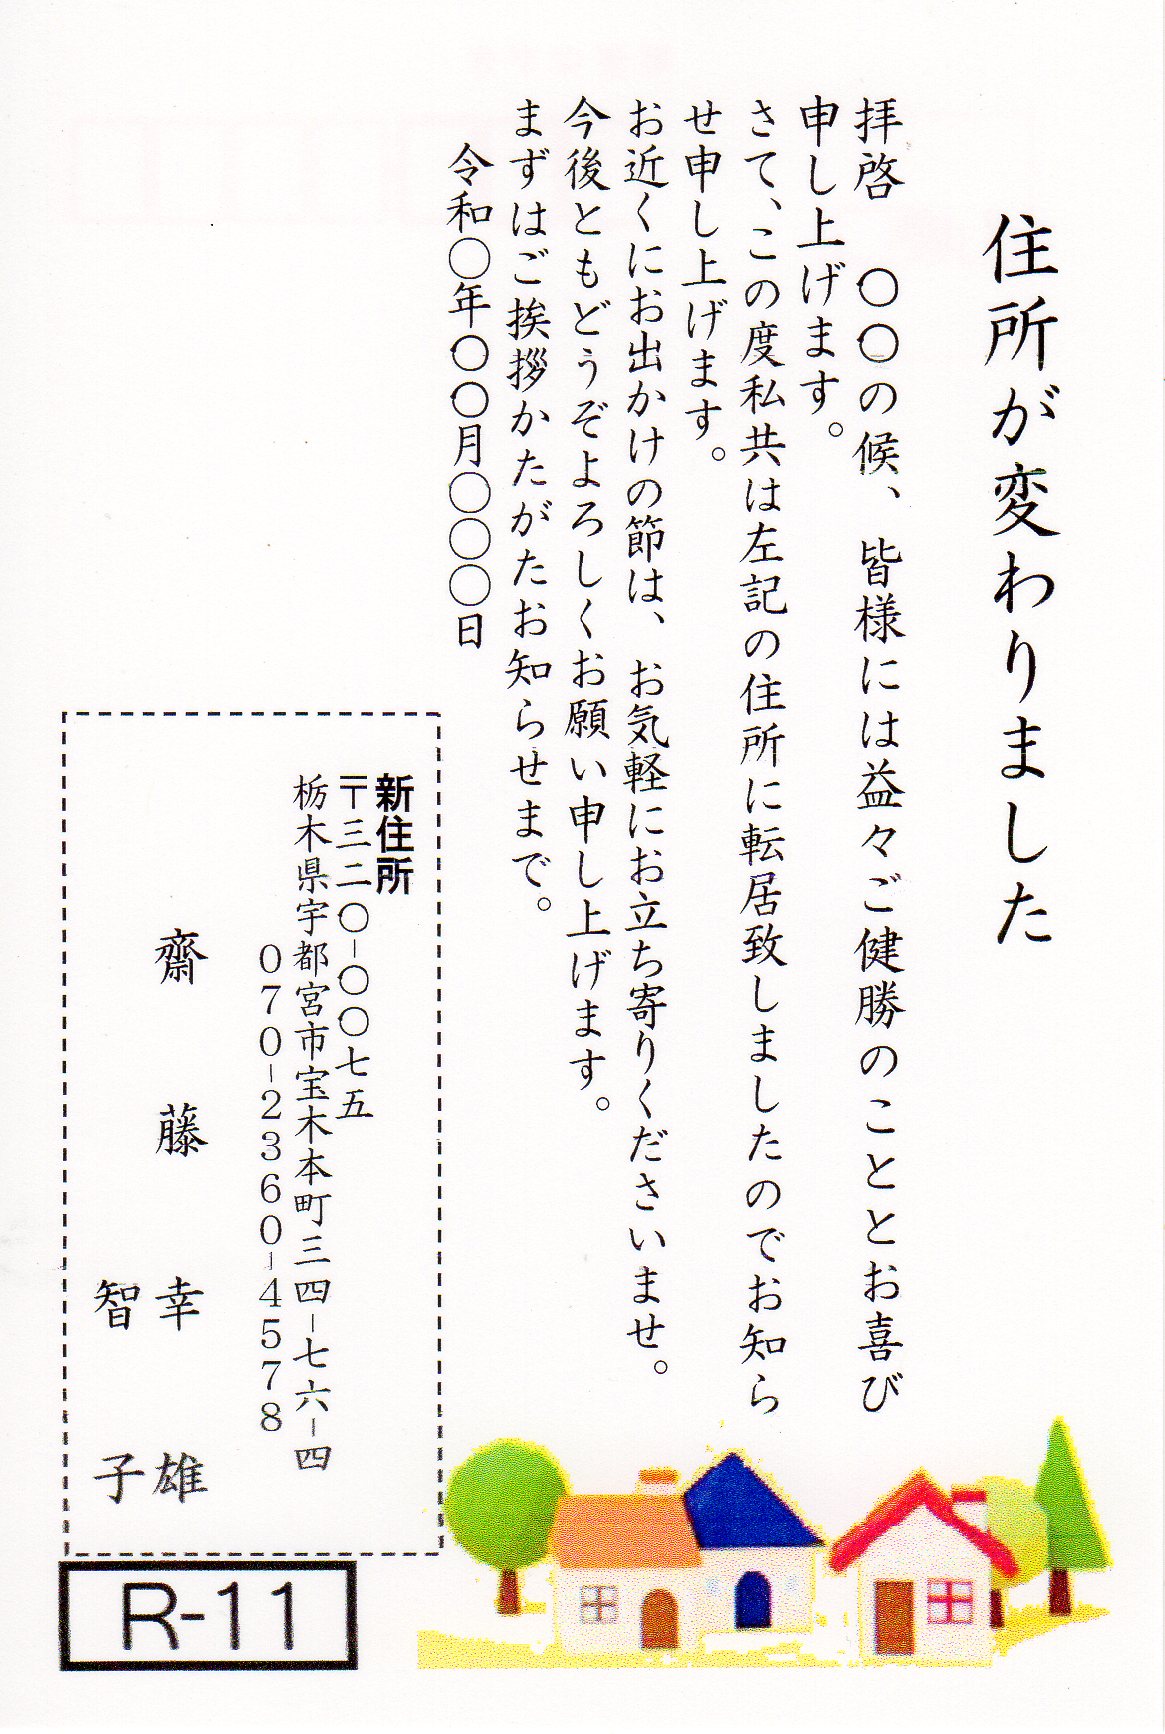 住所が変わりました
拝啓　〇〇の候、皆様には益々ご健勝のこととお喜び
申し上げます。
さて、この度私共は左記の住所に転居致しましたのでお知ら
せ申し上げます。
お近くにお出かけの節は、お気軽にお立ち寄りくださいませ。
今後ともどうぞよろしくお願い申し上げます。
まずはご挨拶かたがたお知らせまで。
令和〇年〇〇月〇〇〇日
新住所
〒三二〇-〇〇七五
栃木県宇都宮市宝木本町三四-七六-四
070-2360-4578
齋藤　幸雄
智子
R-11